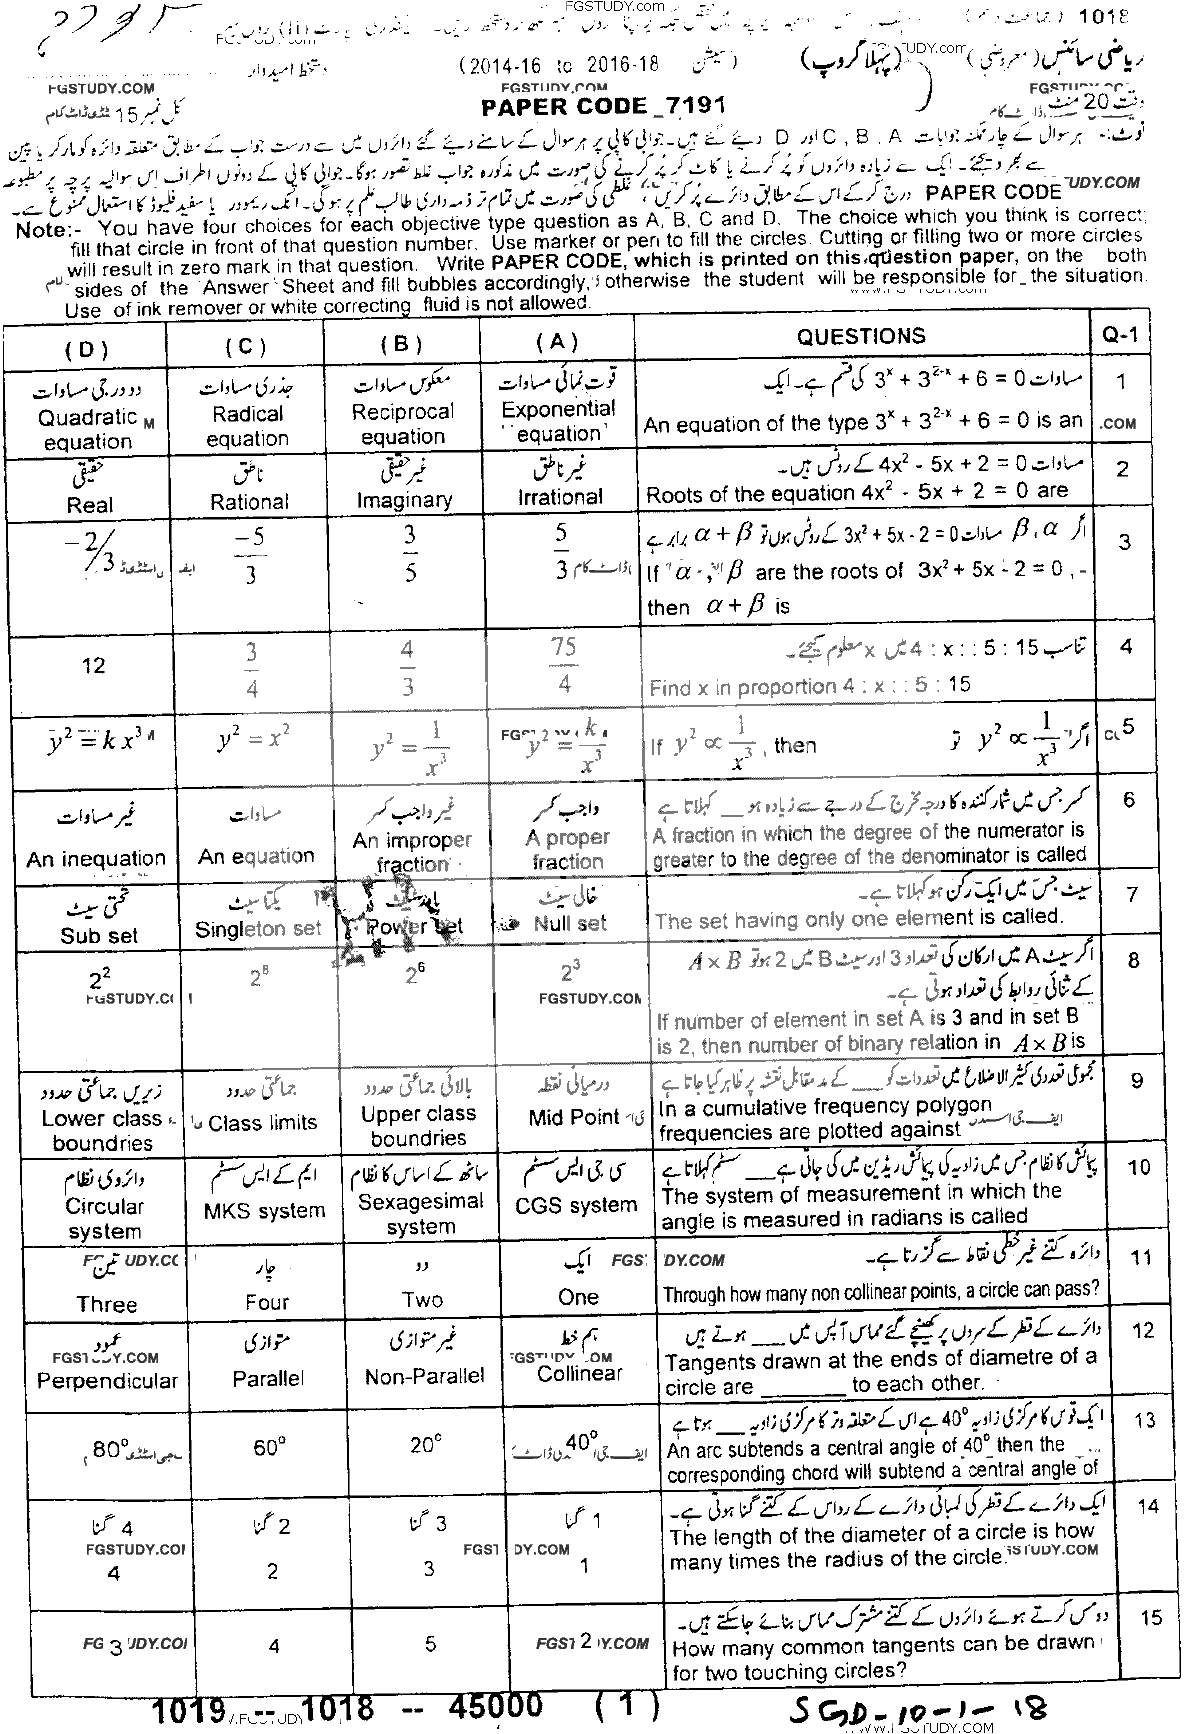 FGSTUDY.COM
1018
ریاضی سائنس (معروضی) (پہلا گروپ) (سیشن 2014-16 to 2016-18) دستخط امیدوار
FGSTUDY.COM
وقت 20 منٹ PAPER CODE 7191 کل نمبر 15
نوٹ:- ہر سوال کے چار ممکنہ جوابات A ، B ، C اور D دیئے گئے ہیں۔ جوابی کاپی پر ہر سوال کے سامنے دیئے گئے دائروں میں سے درست جواب کے مطابق متعلقہ دائرہ کو مارکر یا پین
سے بھر دیجئے۔ ایک سے زیادہ دائروں کو پُر کرنے یا کاٹ کر پُر کرنے کی صورت میں مذکورہ جواب غلط تصور ہوگا۔ جوابی کاپی کے دونوں اطراف اس سوالیہ پرچہ پر مطبوعہ
PAPER CODE درج کرکے اس کے مطابق دائرے پُر کریں، غلطی کی صورت میں تمام تر ذمہ داری طالب علم پر ہوگی۔ انک ریموور یا سفید فلیوڈ کا استعمال ممنوع ہے۔
Note:- You have four choices for each objective type question as A, B, C and D. The choice which you think is correct;
fill that circle in front of that question number. Use marker or pen to fill the circles. Cutting or filling two or more circles
will result in zero mark in that question. Write PAPER CODE, which is printed on this question paper, on the both
sides of the Answer Sheet and fill bubbles accordingly, otherwise the student will be responsible for the situation.
Use of ink remover or white correcting fluid is not allowed.
(D) (C) (B) (A) QUESTIONS Q-1
دو درجی مساوات جذری مساوات معکوس مساوات قوت نمائی مساوات مساوات 3ˣ + 3²⁻ˣ + 6 = 0 کی قسم ہے۔ ایک 1
Quadratic equation Radical equation Reciprocal equation Exponential equation An equation of the type 3ˣ + 3²⁻ˣ + 6 = 0 is an
حقیقی ناطق غیر حقیقی غیر ناطق مساوات 4x² - 5x + 2 = 0 کے روٹس ہیں۔ 2
Real Rational Imaginary Irrational Roots of the equation 4x² - 5x + 2 = 0 are
اگر α ، β مساوات 3x² + 5x - 2 = 0 کے روٹس ہوں تو α + β برابر ہے 3
-2/3 -5/3 3/5 5/3 If α , β are the roots of 3x² + 5x - 2 = 0 ,
then α + β is
تناسب 4 : x : : 5 : 15 میں x معلوم کیجئے۔ 4
12 3/4 4/3 75/4 Find x in proportion 4 : x : : 5 : 15
y² = k x³ y² = x² y² = 1/x³ y² = k/x³ If y² ∝ 1/x³ , then اگر y² ∝ 1/x³ تو 5
غیر مساوات مساوات غیر واجب کسر واجب کسر کسر جس میں شمار کنندہ کا درجہ مخرج کے درجے سے زیادہ ہو ___ کہلاتا ہے 6
An inequation An equation An improper fraction A proper fraction A fraction in which the degree of the numerator is
greater to the degree of the denominator is called
تحتی سیٹ یکتا سیٹ پاور سیٹ خالی سیٹ سیٹ جس میں ایک رکن ہو کہلاتا ہے۔ 7
Sub set Singleton set Power set Null set The set having only one element is called.
اگر سیٹ A میں ارکان کی تعداد 3 اور سیٹ B میں 2 ہو تو A × B 8
کے ثنائی روابط کی تعداد ہوتی ہے۔
2² 2⁸ 2⁶ 2³ If number of element in set A is 3 and in set B
is 2, then number of binary relation in A × B is
زیریں جماعتی حدود جماعتی حدود بالائی جماعتی حدود درمیانی نقطہ مجموعی تعددی کثیر الاضلاع میں تعددات کو ___ کے مد مقابل نقشہ پر ظاہر کیا جاتا ہے 9
Lower class boundries Class limits Upper class boundries Mid Point In a cumulative frequency polygon
frequencies are plotted against
دائروی نظام ایم کے ایس سسٹم ساٹھ کے اساس کا نظام سی جی ایس سسٹم پیمائش کا نظام جس میں زاویہ کی پیمائش ریڈین میں کی جاتی ہے ___ سسٹم کہلاتا ہے 10
Circular system MKS system Sexagesimal system CGS system The system of measurement in which the
angle is measured in radians is called
تین چار دو ایک دائرہ کتنے غیر خطی نقاط سے گزرتا ہے۔ 11
Three Four Two One Through how many non collinear points, a circle can pass?
عمود متوازی غیر متوازی ہم خط دائرے کے قطر کے سروں پر کھینچے گئے مماس آپس میں ___ ہوتے ہیں 12
Perpendicular Parallel Non-Parallel Collinear Tangents drawn at the ends of diametre of a
circle are _______ to each other.
ایک قوس کا مرکزی زاویہ 40° ہے اس کے متعلقہ وتر کا مرکزی زاویہ ___ ہوتا ہے 13
80° 60° 20° 40° An arc subtends a central angle of 40° then the
corresponding chord will subtend a central angle of
4 گنا 2 گنا 3 گنا 1 گنا ایک دائرے کے قطر کی لمبائی دائرے کے رداس کے کتنے گنا ہوتی ہے۔ 14
4 2 3 1 The length of the diameter of a circle is how
many times the radius of the circle.
دو مس کرتے ہوئے دائروں کے کتنے مشترک مماس بنائے جا سکتے ہیں۔ 15
3 4 5 2 How many common tangents can be drawn
for two touching circles?
1019 -- 1018 -- 45000 (1) SGD-10-1-18
WWW.FGSTUDY.COM